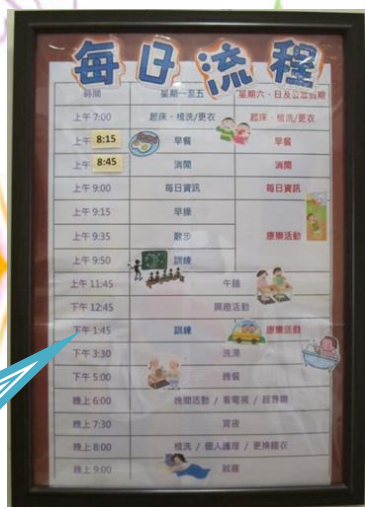 每日流程
時間 星期一至五 星期六、日及公眾假期
上午 7:00 起床、梳洗/更衣 起床、梳洗/更衣
上午 8:15 早餐 早餐
上午 8:45 消閒 消閒
上午 9:00 每日資訊 每日資訊
上午 9:15 早操
上午 9:35 散步 康樂活動
上午 9:50 訓練
上午 11:45 午膳
下午 12:45 興趣活動
下午 1:45 訓練 康樂活動
下午 3:30 洗澡
下午 5:00 晚餐
晚上 6:00 晚間活動 / 看電視 / 聽音樂
晚上 7:30 宵夜
晚上 8:00 梳洗 / 個人護理 / 更換睡衣
晚上 9:00 就寢